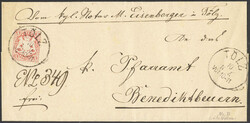 Vom kgl. Notar M. Eisenberger in Tölz.
An das
TÖLZ
TÖLZ
k. Pfarramt
No. 349
frei.
Benediktbeuern.